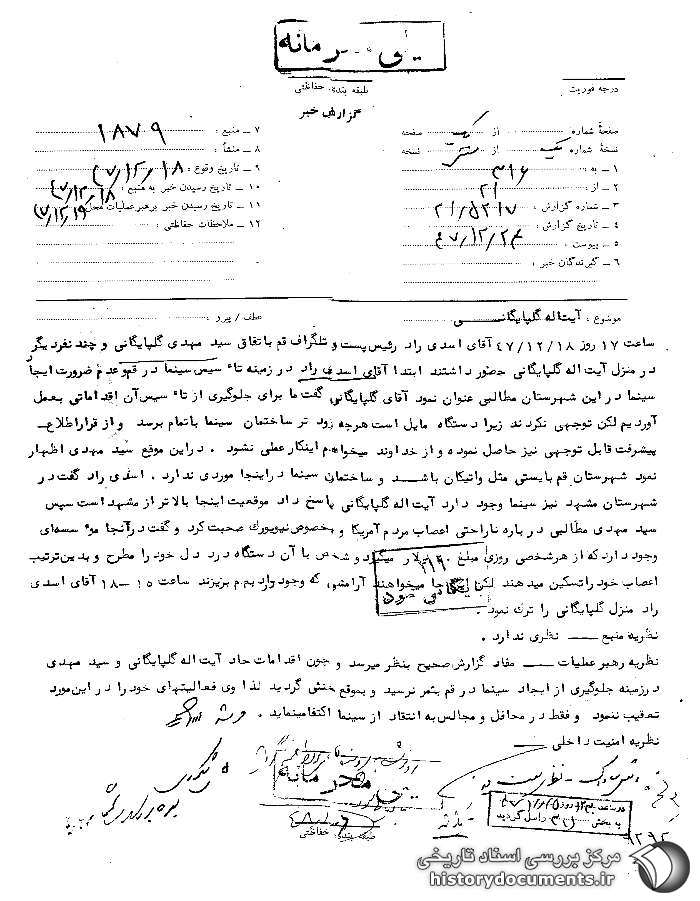 درجه فوریت
طبقه بندی حفاظتی
گزارش خبر
صفحهٔ شماره از یک صفحه
نسخهٔ شماره یک از نسخه
۱ ــ به : ۳۱۶
۲ ــ از : ۲۱
۳ ــ شماره گزارش : ۲۱/۵۲۱۷
۴ ــ تاریخ گزارش : ۴۷/۱۲/۲۴
۵ ــ پیوست :
۶ ــ گیرندگان خبر :
۷ ــ منبع : ۱۸۷۹
۸ ــ منشأ :
۹ ــ تاریخ وقوع : ۴۷/۱۲/۱۸
۱۰ ــ تاریخ رسیدن خبر به منبع : ۴۷/۱۲/۱۸
۱۱ ــ تاریخ رسیدن خبر برهبر عملیات محل : ۴۷/۱۲/۱۹
۱۲ ــ ملاحظات حفاظتی :
موضوع : آیت اله گلپایگانــــی
عطف / پیرو :
ساعت ۱۷ روز ۴۷/۱۲/۱۸ آقای اسدی راد رئیس پست و تلگراف قم باتفاق سید مهدی گلپایگانی و چند نفر دیگر
در منزل آیت اله گلپایگانی حضور داشتند ابتدا آقای اسدی راد در زمینه تاٴسیس سینما در قم و عدم ضرورت ایجاد
سینما در این شهرستان مطالبی عنوان نمود آقای گلپایگانی گفت ما برای جلوگیری از تاٴسیس آن اقداماتی بعمل
آوردیم لکن توجهی نکردند زیرا دستگاه مایل است هرچه زود تر ساختمان سینما باتمام برسد و از قرار اطلاع
پیشرفت قابل توجهی نیز حاصل نموده و از خداوند میخواهم اینکار عملی نشود . در این موقع سید مهدی اظهار
نمود شهرستان قم بایستی مثل واتیکان باشد و ساختمان سینما در اینجا موردی ندارد . اسدی راد گفت در
شهرستان مشهد نیز سینما وجود دارد آیت اله گلپایگانی پاسخ داد موقعیت اینجا بالا تر از مشهد است سپس
سید مهدی مطالبی در باره ناراحتی اعصاب مردم آمریکا و بخصوص نیویورک صحبت کرد و گفت در آنجا موٴسسه‌ای
وجود دارد که از هر شخصی روزی مبلغ دلار میگیرد و شخص با آن دستگاه درد دل خود را مطرح و بدین ترتیب
اعصاب خود را تسکین میدهند لکن جا میخواهند آرامشی که وجود دارد بهم بریزند ساعت ۱۵ــ۱۸ آقای اسدی
راد منزل گلپایگانی را ترک نمود .
نظریه منبع ــــ نظری ندارد .
نظریه رهبر عملیات ــــ مفاد گزارش صحیح بنظر میرسد و چون اقدامات حاد آیت اله گلپایگانی و سید مهدی
در زمینه جلوگیری از ایجاد سینما در قم بثمر نرسید و بموقع خنثی گردید لذا وی فعالیتهای خود را در این مورد
تعقیب ننمود و فقط در محافل و مجالس به انتقاد از سینما اکتفا مینماید .
نظریه امنیت داخلی ــ
بایگانی شود
طبقه بندی حفاظتی
مرکز بررسی اسناد تاریخی
historydocuments.ir